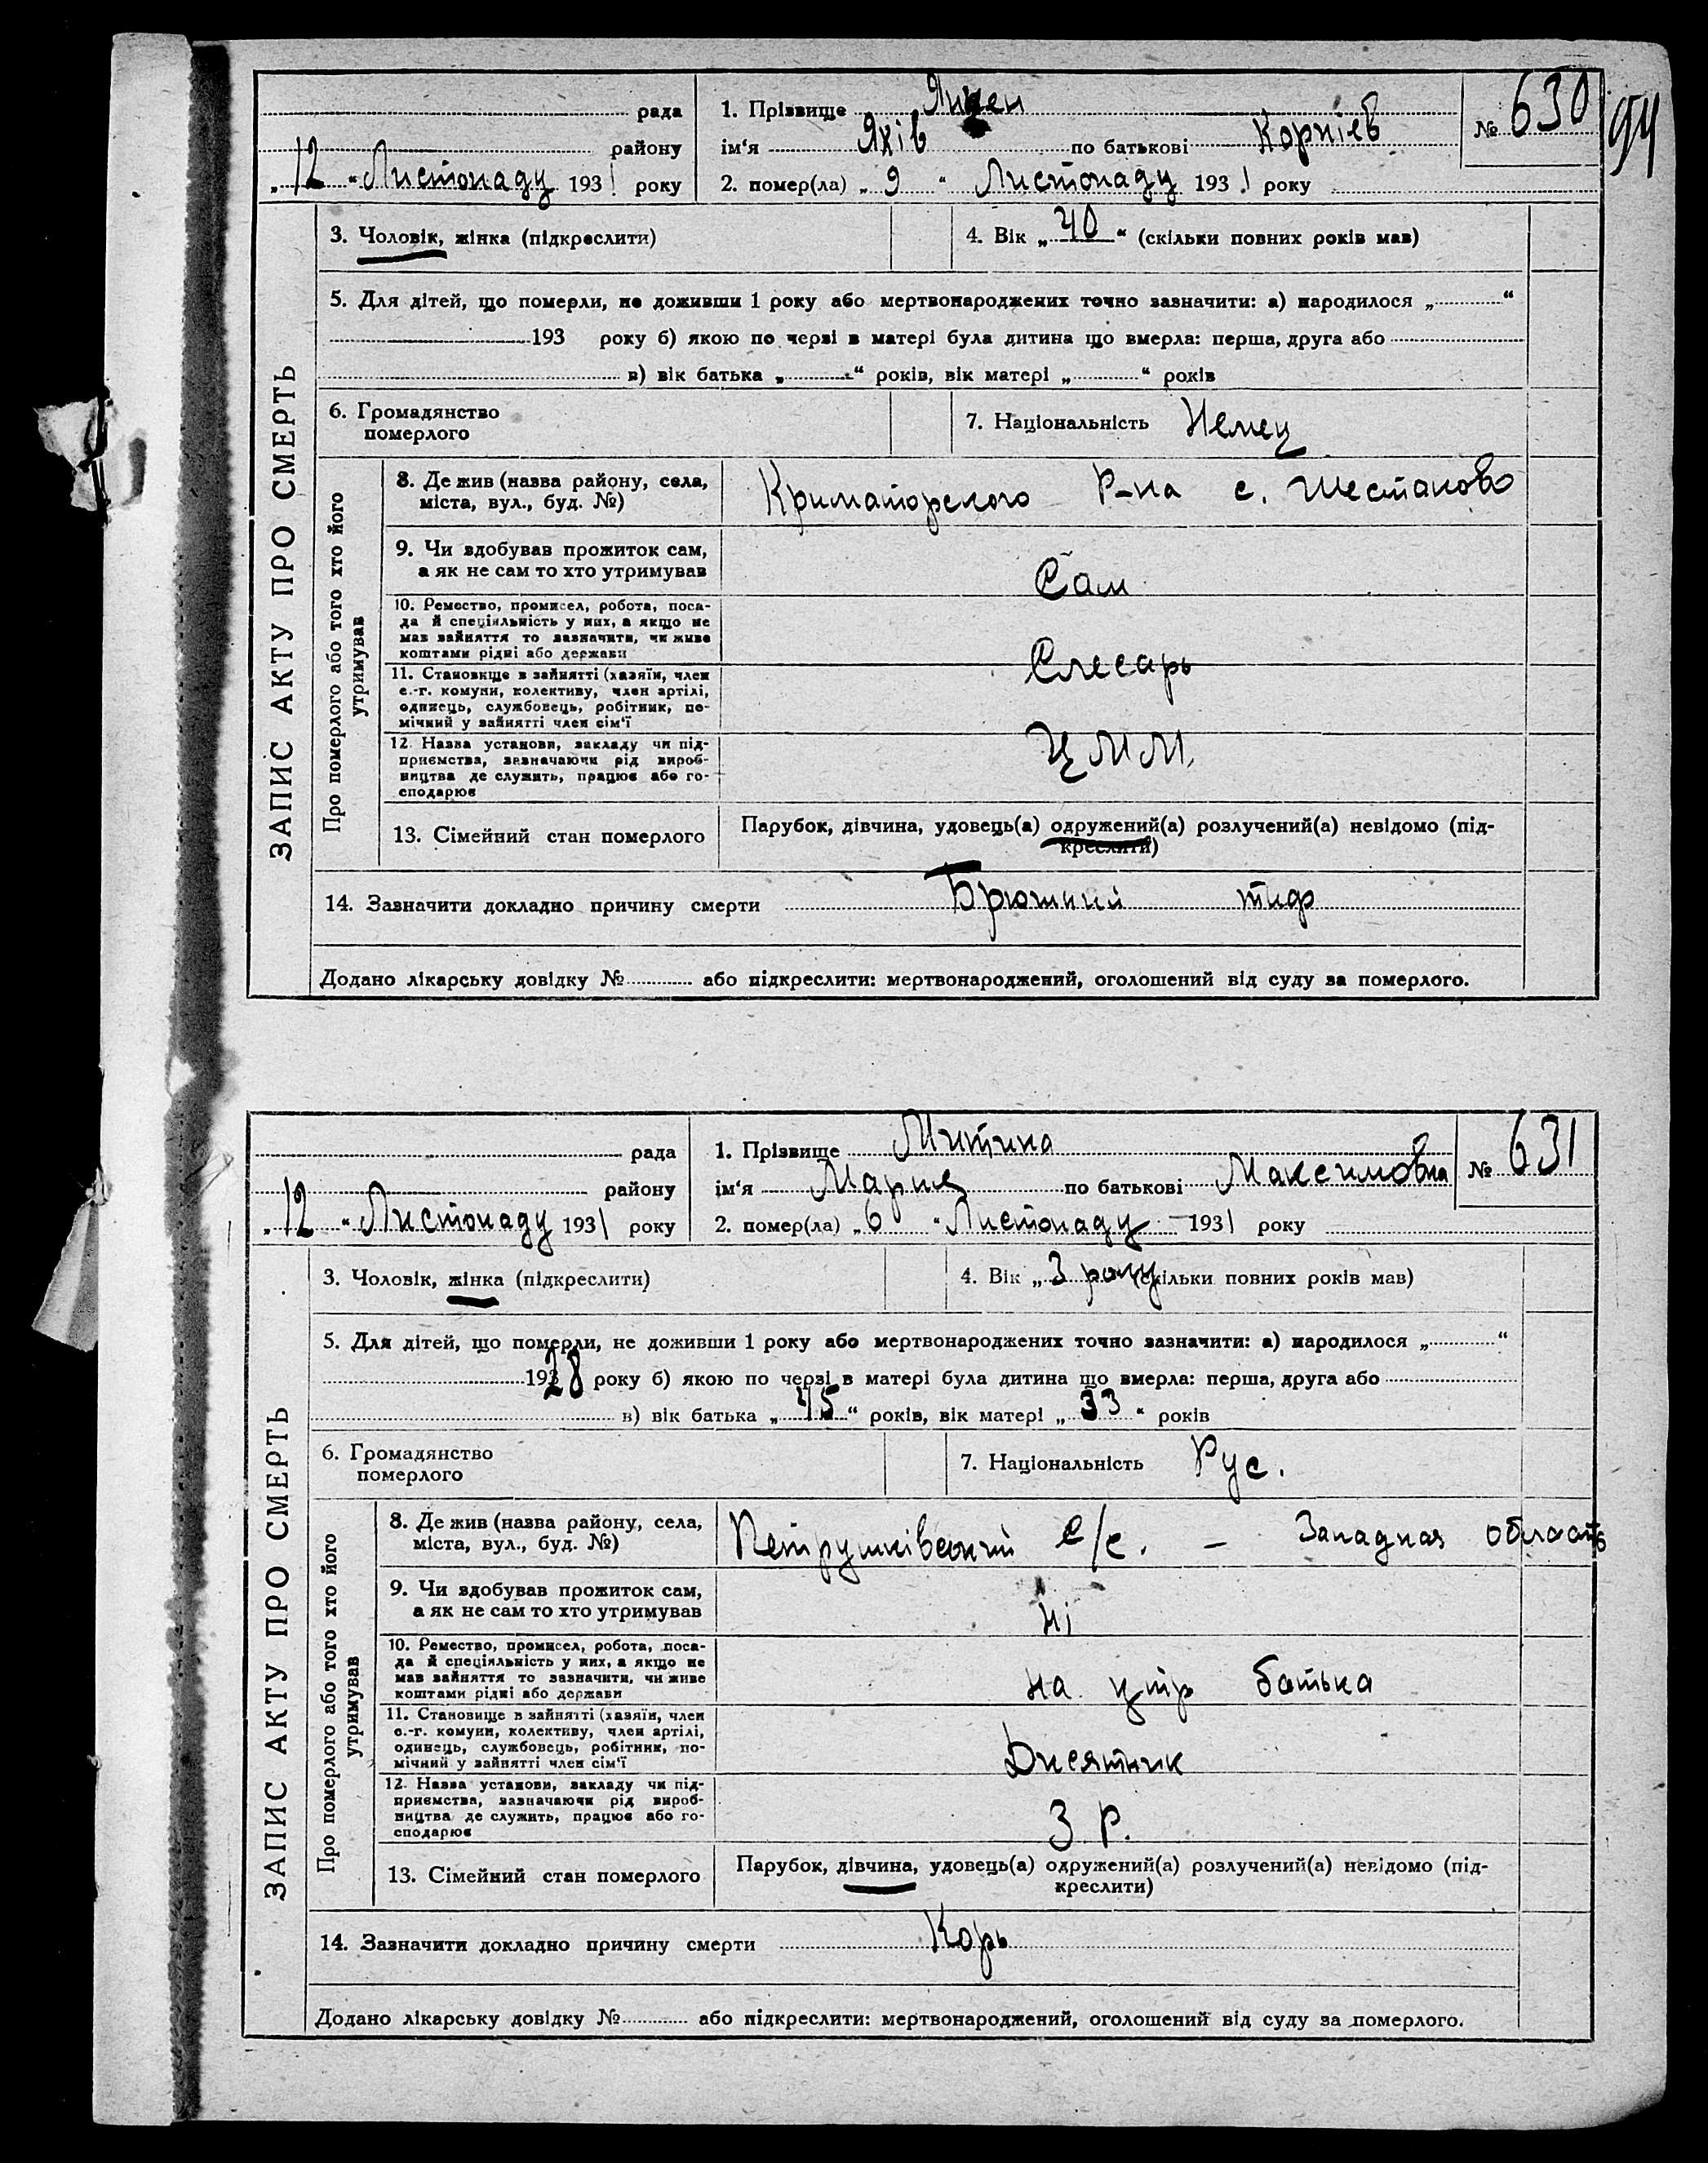 94
рада
району
„12“ Листопаду 1931 року
1. Прізвище Янцен
ім'я Яків по батькові Корнієв
2. помер(ла) „9“ Листопаду 1931 року
№ 630
ЗАПИС АКТУ ПРО СМЕРТЬ
3. Чоловік, жінка (підкреслити)
4. Вік „40“ (скільки повних років мав)
5. Для дітей, що померли, не доживши 1 року або мертвонароджених точно зазначити: а) народилося „ “
193 року б) якою по черзі в матері була дитина що вмерла: перша, друга або
в) вік батька „ “ років, вік матері „ “ років
6. Громадянство
померлого
7. Національність Немец
Про померлого або того хто його
утримував
8. Де жив (назва району, села,
міста, вул., буд. №)
Криматорского Р-на с. Шестаково
9. Чи вдобував прожиток сам,
а як не сам то хто утримував
Сам
10. Ремество, промисел, робота, поса-
да й спеціяльність у них, а якщо не
мав вайняття то зазначити, чи живе
коштами рідні або держави
Слесарь
11. Становище в зайнятті (хазяїн, член
с.-г. комуни, колективу, член артілі,
одинець, службовець, робітник, по-
мічний у вайнятті член сім'ї
12. Назва установи, закладу чи під-
приємства, зазначаючи рід вироб-
ництва де служить, працює або го-
сподарює
ЦММ
13. Сімейний стан померлого
Парубок, дівчина, удовець(а) одружений(а) розлучений(а) невідомо (під-
креслити)
14. Зазначити докладно причину смерти Брюшний тиф
Додано лікарську довідку № або підкреслити: мертвонароджений, оголошений від суду за померлого.
рада
району
„12“ Листопаду 1931 року
1. Прізвище Митина
ім'я Мария по батькові Максимовна
2. помер(ла) „6“ Листопаду 1931 року
№ 631
ЗАПИС АКТУ ПРО СМЕРТЬ
3. Чоловік, жінка (підкреслити)
4. Вік „3 року (скільки повних років мав)
5. Для дітей, що померли, не доживши 1 року або мертвонароджених точно зазначити: а) народилося „ “
1928 року б) якою по черзі в матері була дитина що вмерла: перша, друга або
в) вік батька „45“ років, вік матері „33“ років
6. Громадянство
померлого
7. Національність Рус.
Про померлого або того хто його
утримував
8. Де жив (назва району, села,
міста, вул., буд. №)
Петрушківський с/с. – Западная область
9. Чи вдобував прожиток сам,
а як не сам то хто утримував
ні
10. Ремество, промисел, робота, поса-
да й спеціяльність у них, а якщо не
мав вайняття то зазначити, чи живе
коштами рідні або держави
на утр батька
11. Становище в зайнятті (хазяїн, член
с.-г. комуни, колективу, член артілі,
одинець, службовець, робітник, по-
мічний у вайнятті член сім'ї
Дисятник
12. Назва установи, закладу чи під-
приємства, зазначаючи рід вироб-
ництва де служить, працює або го-
сподарює
З Р.
13. Сімейний стан померлого
Парубок, дівчина, удовець(а) одружений(а) розлучений(а) невідомо (під-
креслити)
14. Зазначити докладно причину смерти Корь
Додано лікарську довідку № або підкреслити: мертвонароджений, оголошений від суду за померлого.